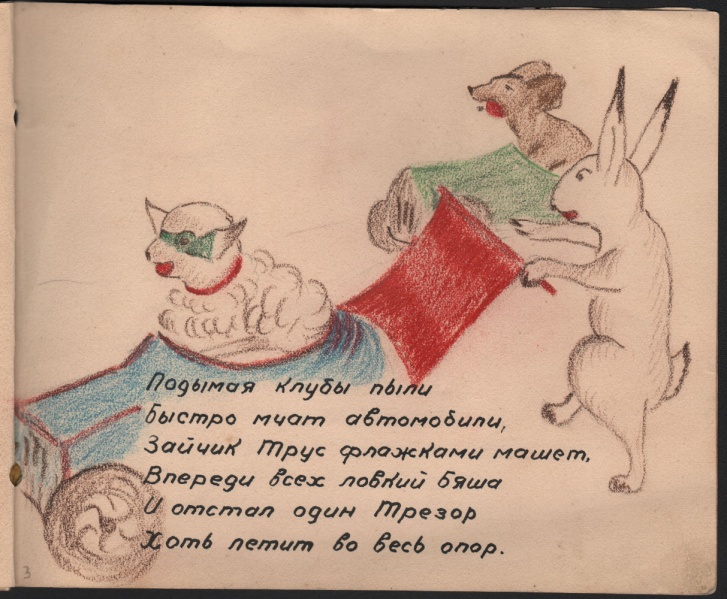 Подымая клубы пыли
Быстро мчат автомобили,
Зайчик Трус флажками машет,
Впереди всех ловкий Бяша
И отстал один Трезор
Хоть летит во весь опор.
3